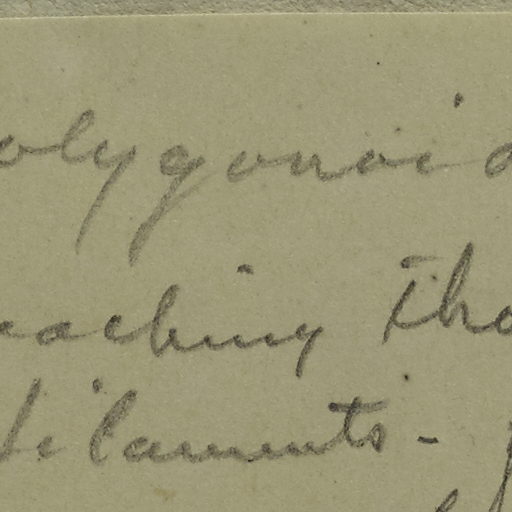 olygonoid
eaching the
filaments -